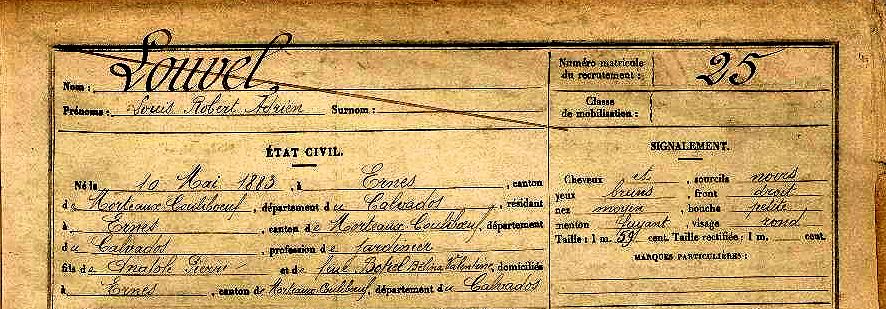 Nom : Louvel
Prénoms : Louis Robert Adrien Surnom :
ÉTAT CIVIL.
Né le 10 Mai 1883, à Ernes, canton
de Morteaux-Coulibœuf, département du Calvados, résidant
à Ernes, canton de Morteaux-Coulibœuf, département
du Calvados, profession de Jardinier
fils de Anatole Pierre et de feue Botrel Bélina Valentine, domiciliés
à Ernes, canton de Morteaux-Coulibœuf, département du Calvados
Numéro matricule
du recrutement : 25
Classe
de mobilisation :
SIGNALEMENT.
Cheveux et, sourcils noirs
yeux bruns, front droit
nez moyen, bouche petite
menton fuyant, visage rond
Taille : 1 m. 59 cent. Taille rectifiée : 1 m. cent.
MARQUES PARTICULIÈRES :